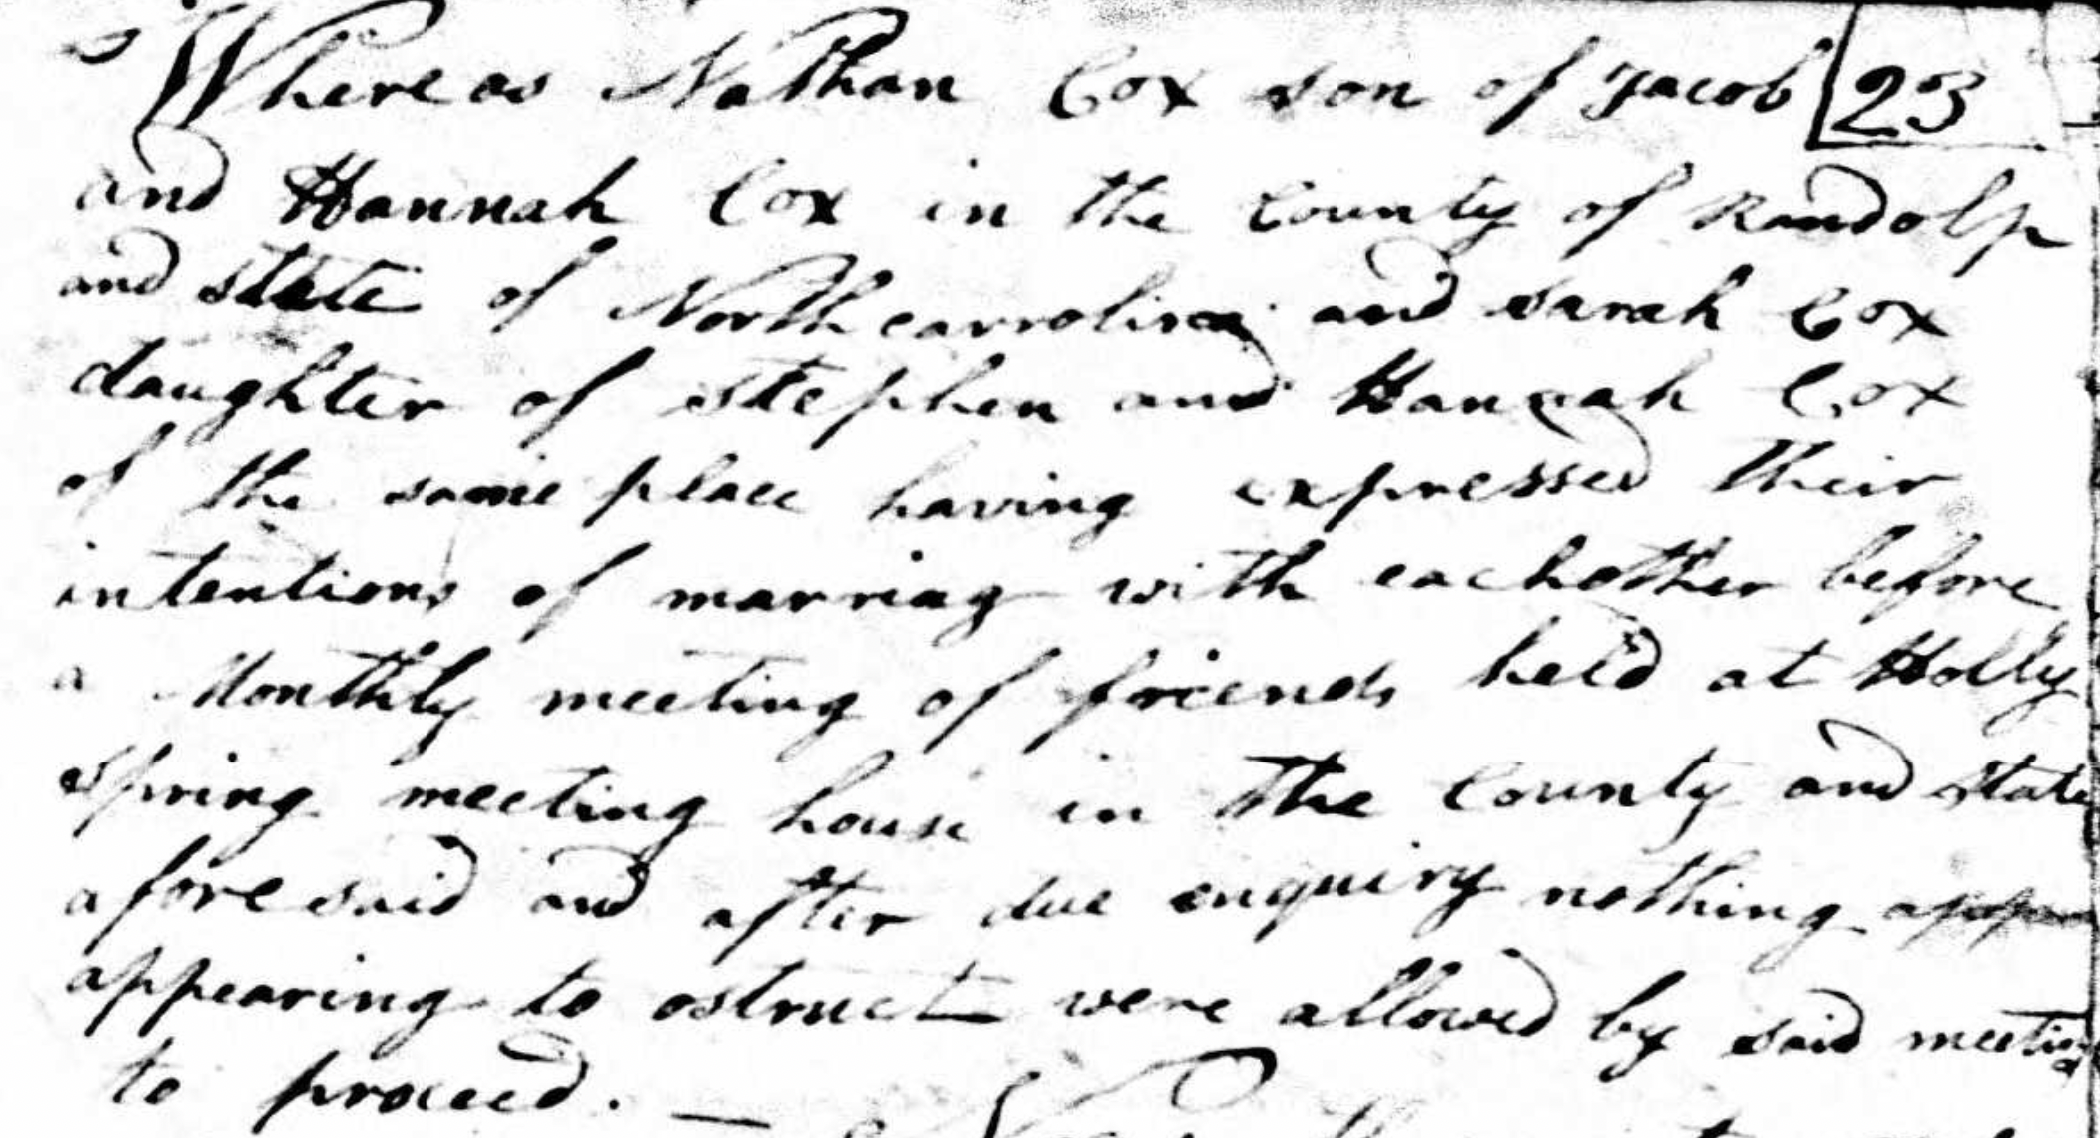 Whereas Nathan Cox son of Jacob 23
and Hannah Cox in the County of Randolp
and state of North carrolina and Sarah Cox
daughter of Stephen and Hannah Cox
of the same place having expressed their
intentions of marriag with eachother before
a Monthly meeting of friends held at Holly
spring meeting house in the County and state
afore said and after due enquiry nothing appr
appearing to ostruct were allowed by said meeting
to proceed. —